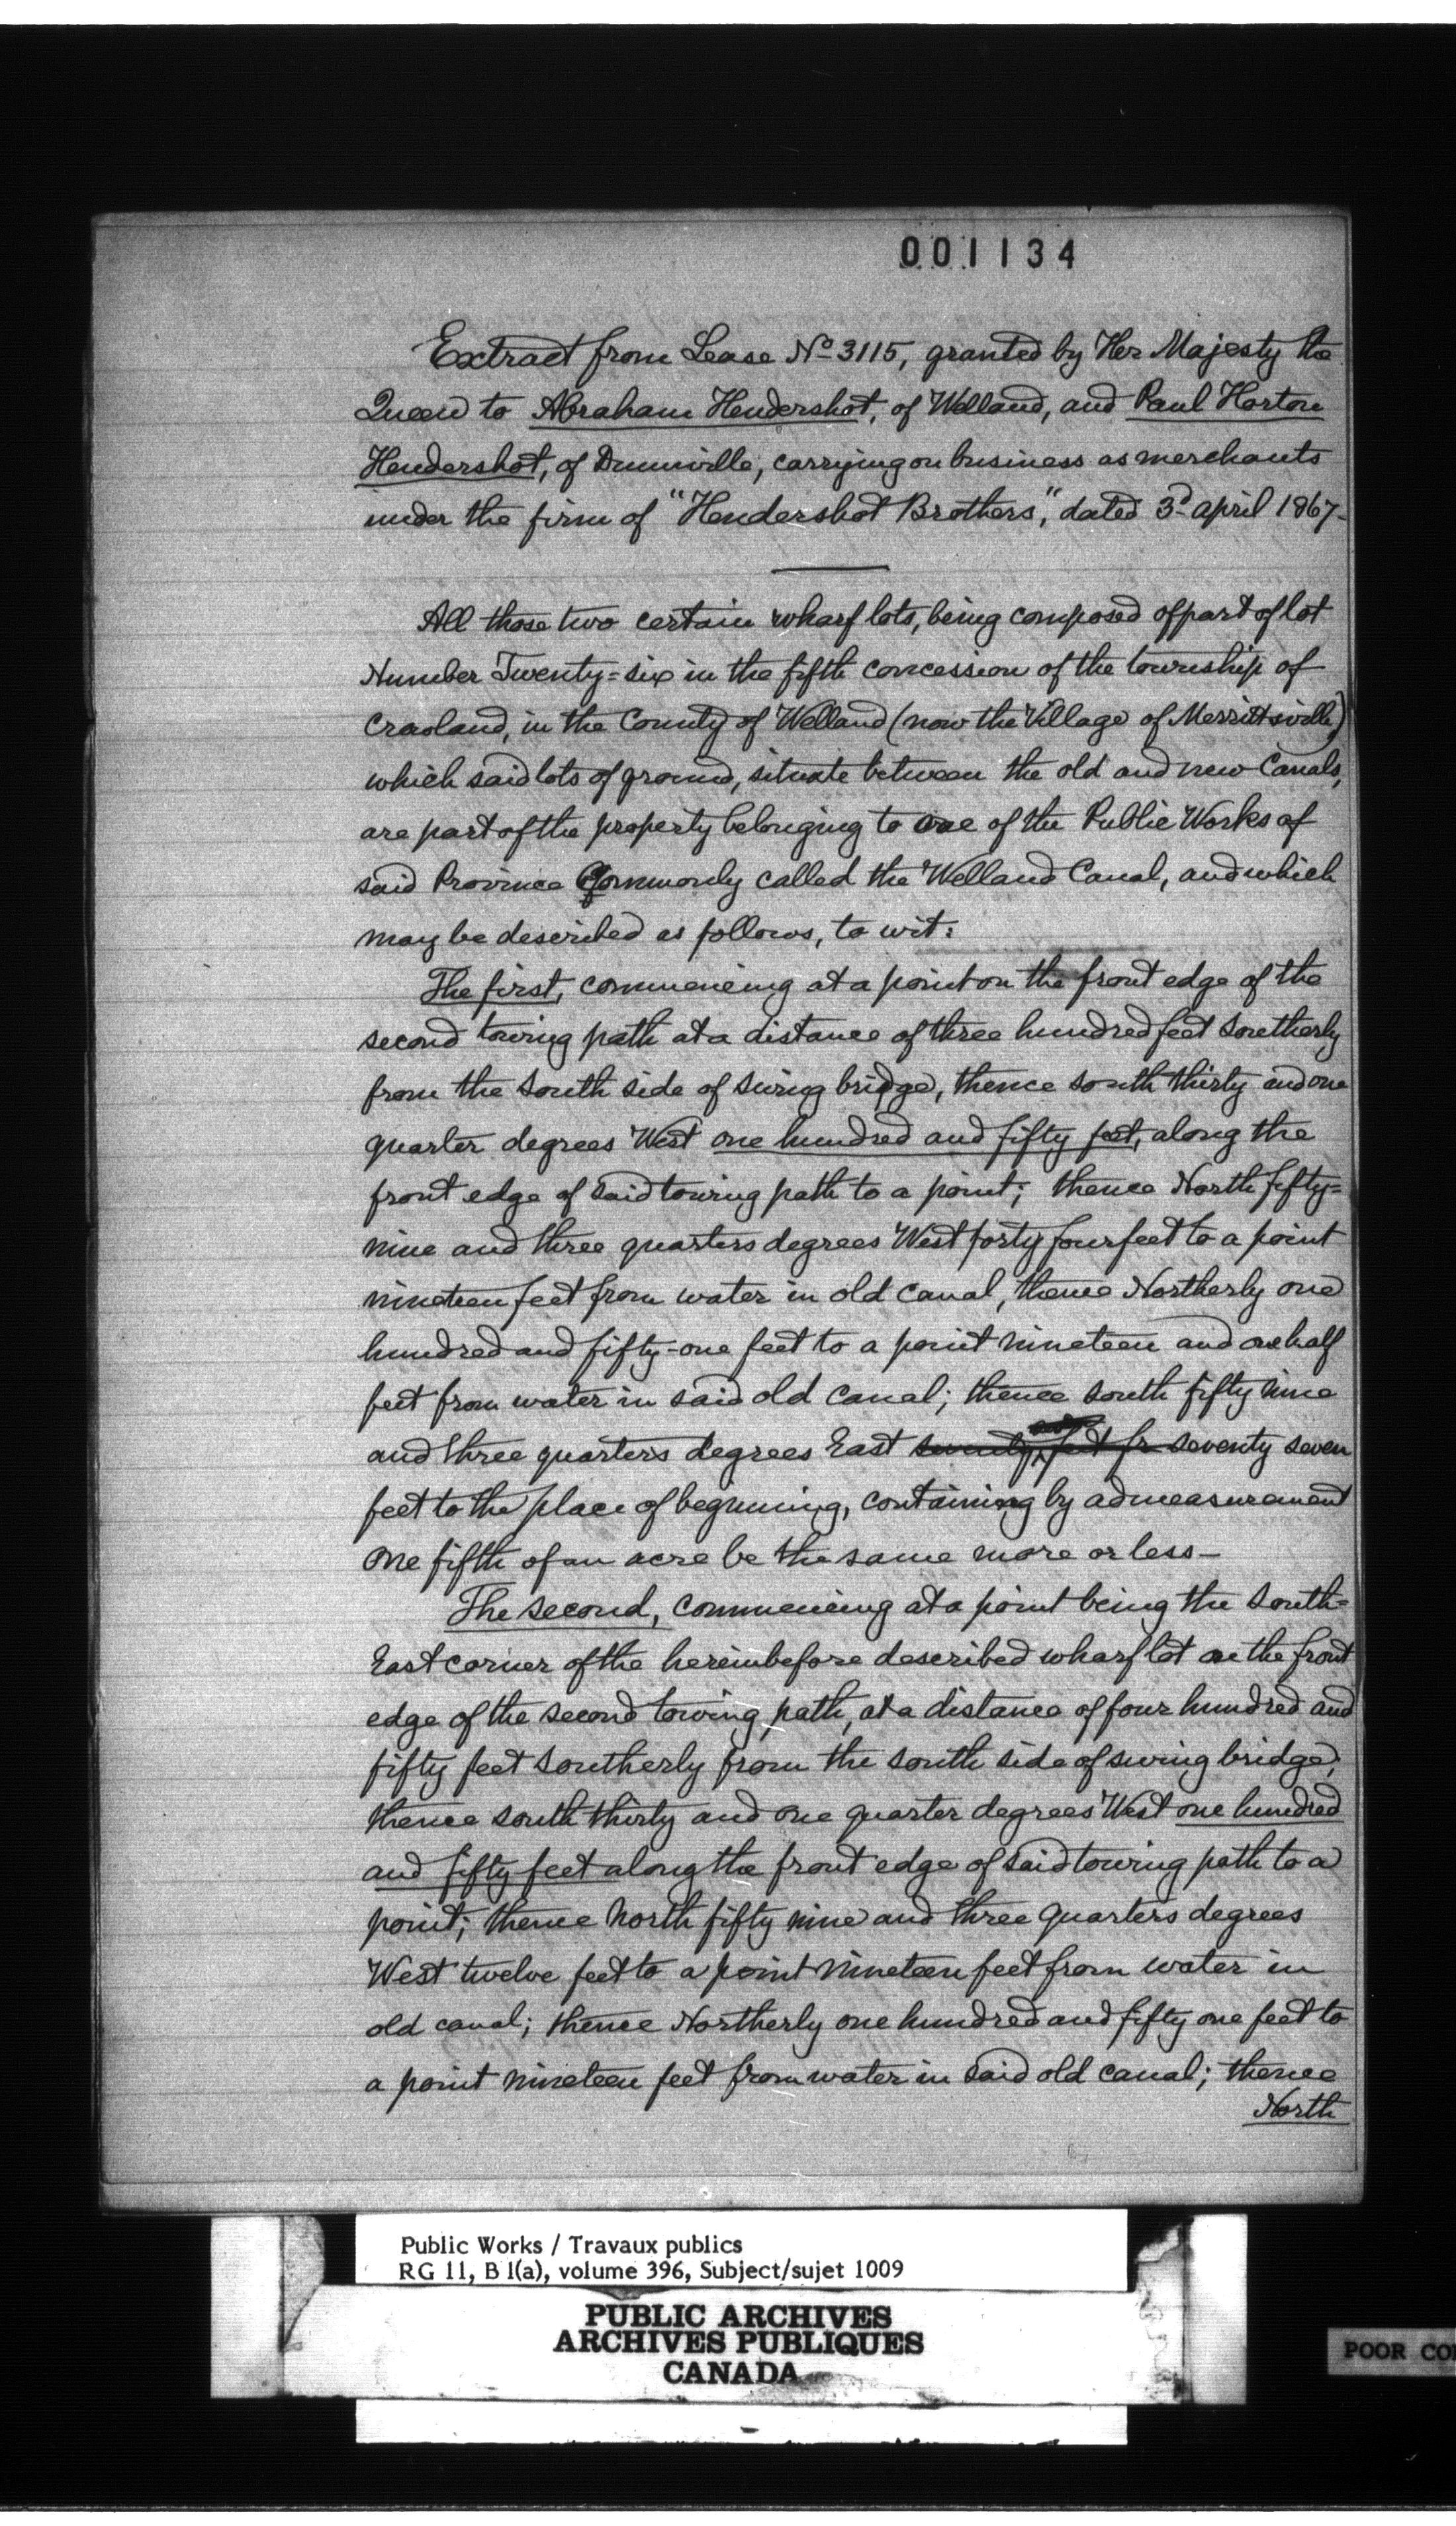 001134
Extract from Lease No 3115, granted by Her Majesty the
Queen to Abraham Hendershot, of Welland, and Paul Horton
Hendershot, of Dunnville, carrying on business as merchants
under the firm of "Hendershot Brothers", dated 3d April 1867-
All those two certain wharf lots, being composed of part of lot
Number Twenty=six in the fifth concession of the township of
Crowland, in the County of Welland (now the Village of Merrittsville)
which said lots of ground, situate between the old and new Canals,
are part of the property belonging to one of the Public Works of
said Province Commonly called the Welland Canal, and which
may be described as follows, to wit:
The first, commencing at a point on the front edge of the
second towing path at a distance of three hundred feet Southerly
from the South side of swing bridge, thence south thirty and one
quarter degrees West one hundred and fifty feet, along the
front edge of said towing path to a point; thence North fifty=
nine and three quarters degrees West forty four feet to a point
nineteen feet from water in old canal, thence Northerly one
hundred and fifty-one feet to a point nineteen and one half
feet from water in said old canal; thence south fifty nine
and three quarters degrees East seventy feet fr seventy seven
feet to the place of beginning, containing by admeasurement
One fifth of an acre be the same more or less-
The second, commencing at a point being the South=
East corner of the hereinbefore described wharf lot on the front
edge of the second towing path, at a distance of four hundred and
fifty feet southerly from the south side of swing bridge,
thence south thirty and one quarter degrees West one hundred
and fifty feet along the front edge of said towing path to a
point; thence North fifty nine and three quarters degrees
West twelve feet to a point nineteen feet from water in
old canal; thence Northerly one hundred and fifty one feet to
a point nineteen feet from water in said old canal; thence
North
Public Works / Travaux publics
RG 11, B 1(a), volume 396, Subject/sujet 1009
PUBLIC ARCHIVES
ARCHIVES PUBLIQUES
CANADA
POOR CO